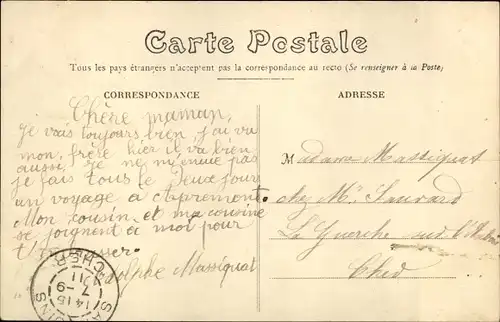 Carte Postale
Tous les pays étrangers n'acceptent pas la correspondance au recto (Se renseigner à la Poste)
CORRESPONDANCE
Chère maman,
je vais toujours bien, j'ai vu
mon frère hier il va bien
aussi je ne m'ennuie pas
je fais tous le deux jours
un voyage a
Mon cousin et ma cousine
se joignent a moi pour
Massiquat
ADRESSE
Madame Massiquat
chez Mr
La Guerche sur l'Aubois
Cher
CHER
14 15
7 - 9
11